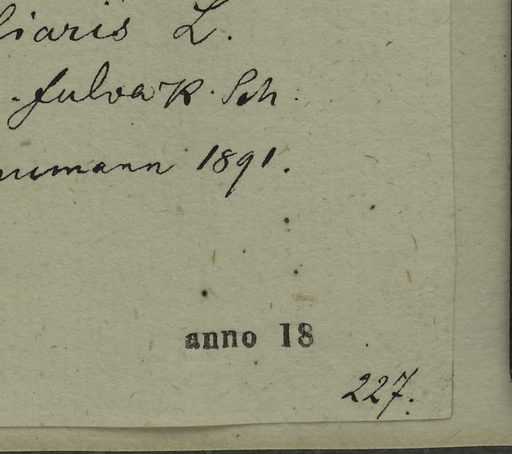 liaris L.
. fulva R. Sch.
numann 1891.
anno 18
227.